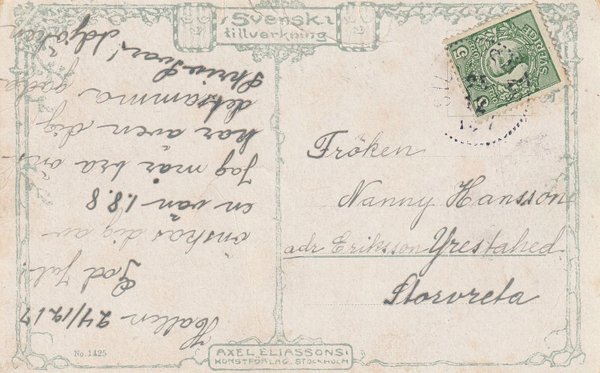 Svensk
tillverkning
Hallen 24/12 17
God Jul.
önskas dig av
en vän 1.8.8
Jag mår bra öns-
kar även dig
detsamma,
Skriv Svar! Adjö
Fröken
Nanny Hansson
adr Eriksson Yrestahed
Storvreta
SVERIGE
5
5
No. 1425
AXEL ELIASSONS
KONSTFÖRLAG. STOCKHOLM